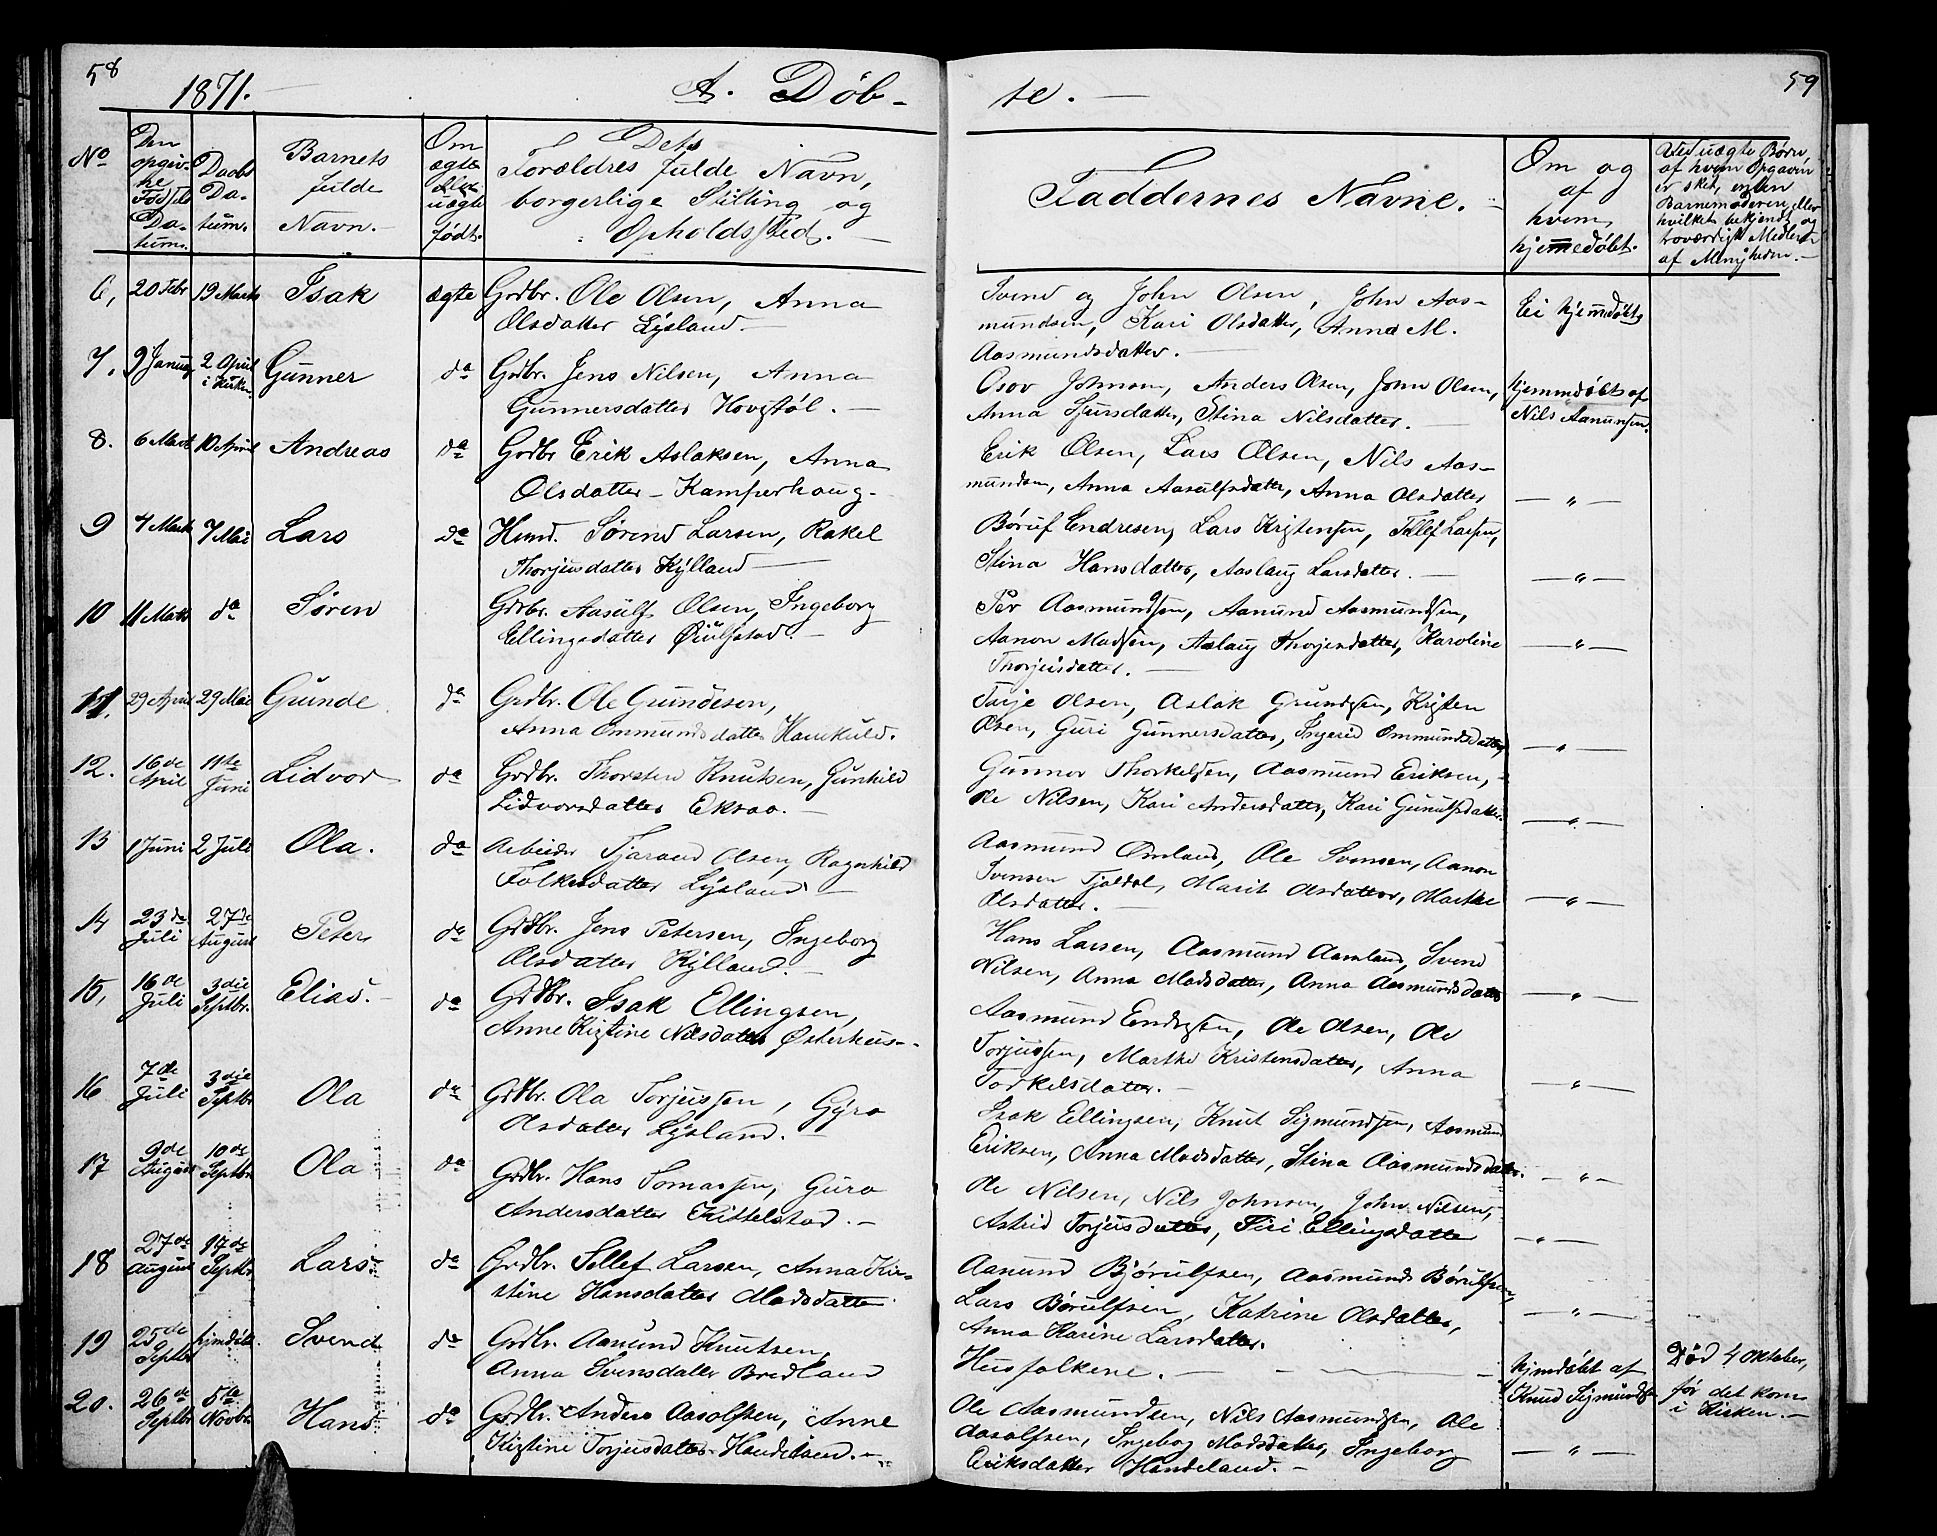 58
59
1871.
A. Døb-
te.
No
Den opgivne Fødsels Datum.
Daabs Datum.
Barnets fulde Navn.
Om ægte eller uægte født.
Dets Forældres fulde Navn, borgerlige Stilling og Opholdssted.
Faddernes Navne.
Om og af hvem hjemmedøbt.
Ved uægte Børn, af hvem Opgaven er sket, enten Barnemoderen eller hvilket bekjendt og troværdigt Medlem af Menigheden.
6, 20 Febr 19 Marts Isak ægte Grdbr. Ole Olsen, Anna
Olsdatter Lysland.
Svend og John Olsen, John Aas-
mundsen, Kari Olsdatter, Anna M.
Aasmundsdatter.
Ei hjemdøbt
7. 9 Januar 2 April i Kirken Gunner do Grdbr. Jens Nilsen, Anna
Gunnersdatter Hovstøl.
Osov Johnsen, Anders Olsen, John Olsen,
Anna Sjursdatter, Stina Nilsdatter.
hjemmdøbt af
Nils Aanunsen.
8. 6 Marts 10 April Andreas do Grdbr Erik Aslaksen, Anna
Olsdatter - Kamperhaug.
Erik Olsen, Lars Olsen, Nils Aas-
mundsen, Anna Aasulfsdatter, Anna Olsdatter
— " —
9 4 Marts 7 Mai Lars do Husmd. Sørend Larsen, Rakel
Thorjusdatter Kylland
Børuf Endresen, Lars Kristensen, Tellef Larsen,
Stina Hansdatter, Aaslaug Larsdatter.
— " —
10 11 Marts do Søren Grdbr. Aasulf Olsen, Ingeborg
Ellingsdatter Øiulfstad.
Per Aasmundsen, Aanund Aasmundsen,
Aanon Madsen, Aslaug Thorjusdatter, Karoline
Thorjusdatter.
— " —
11. 29 April 29 Mai Gunde do Grdbr. Ole Gundesen,
Anna Ommundsdatter
Tarje Olsen, Aslak Grundesen, Kristen
Olsen, Guri Gunnersdatter, Ingerid Ommundsdatter
— " —
12. 16de April 11te Juni Lidvor do Grdbr. Thorsten Knutsen, Gunhild
Lidvorsdatter Ekraa.
Gunnar Thorkelsen, Aasmund Eriksen,
Ole Nilsen, Kari Andersdatter, Kari Gunulfsdatter.
— " —
13 1 Juni 2 Juli Ola. do Arbeider Tjarand Olsen, Ragnhild
Folkesdatter Lysland
Aasmund Omland, Ole Svensen, Aanon
Svensen Tjaldal, Marit Olsdatter, Marthe
Olsdatter.
— " —
14 23de Juli 27de August Peter do Grdbr. Jens Petersen, Ingeborg
Olsdatter Kylland.
Hans Larsen, Aasmund Aamland, Svend
Nilsen, Anna Madsdatter, Anna Aasmundsdatter
— " —
15, 16de Juli 3die Septbr. Elias. do Grdbr. Isak Ellingsen,
Anne Kristine Nilsdatter Østerhus.
Aasmund Endresen, Ole Olsen, Ole
Torjussen, Marthe Kristensdatter, Anna
Torkelsdatter.
— " —
16 7de Juli 3die Septbr Ola do Grdbr. Ola Torjussen, Gyro
Olsdatter Lysland.
Isak Ellingsen, Knut Sigmundsen, Aasmund
Eriksen, Anna Madsdatter, Stina Aasmundsdatter.
— " —
17 9de August 10de Septbr Ola do Grdbr. Hans Tomassen, Guro
Andersdatter Kittelstad.
Ole Nilsen, Nils Johnsen, John Nilsen,
Astrid Torjusdatter, Siri Ellingsdatter
— " —
18 27de August 17de Septbr Lars do Grdbr. Tellef Larsen, Anna Kir-
stine Hansdatter Madsdatter
Aanund Bjørulfsen, Aasmund Børulfsen,
Lars Børulfsen, Katrine Olsdatter,
Anna Karine Larsdatter.
— " —
19 25de Septbr hjemdøbt. Svend do Grdbr. Aanund Knutsen,
Anna Svensdatter Bredland
Husfolkene.
hjemdøbt af
Knud Sigmundsen
Død 4 Oktober,
før det kom
i Kirken.
20. 26de Septbr 5te Novbr Hans do Grdbr. Anders Aasolfsen, Anne
Kistine Torjusdatter Handeland.
Ole Aasmundsen, Nils Aasmundsen, Ole
Aasolfsen, Ingeborg Madsdatter, Ingeborg
Eriksdatter Handeland.
— " —